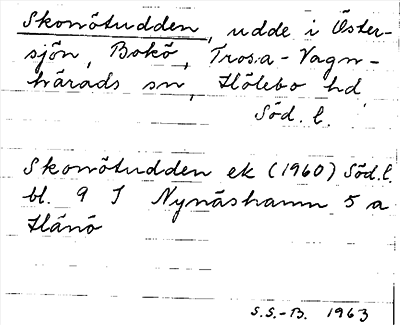 Skonötudden, udde i Öster-
sjön, Bokö, Trosa-Vagn-
härads sn, Hölebo hd,
Söd. l.
Skonötudden ek (1960) Söd. l.
bl. 9 I Nynäshamn 5 a
Hånö
S.S.-B. 1963